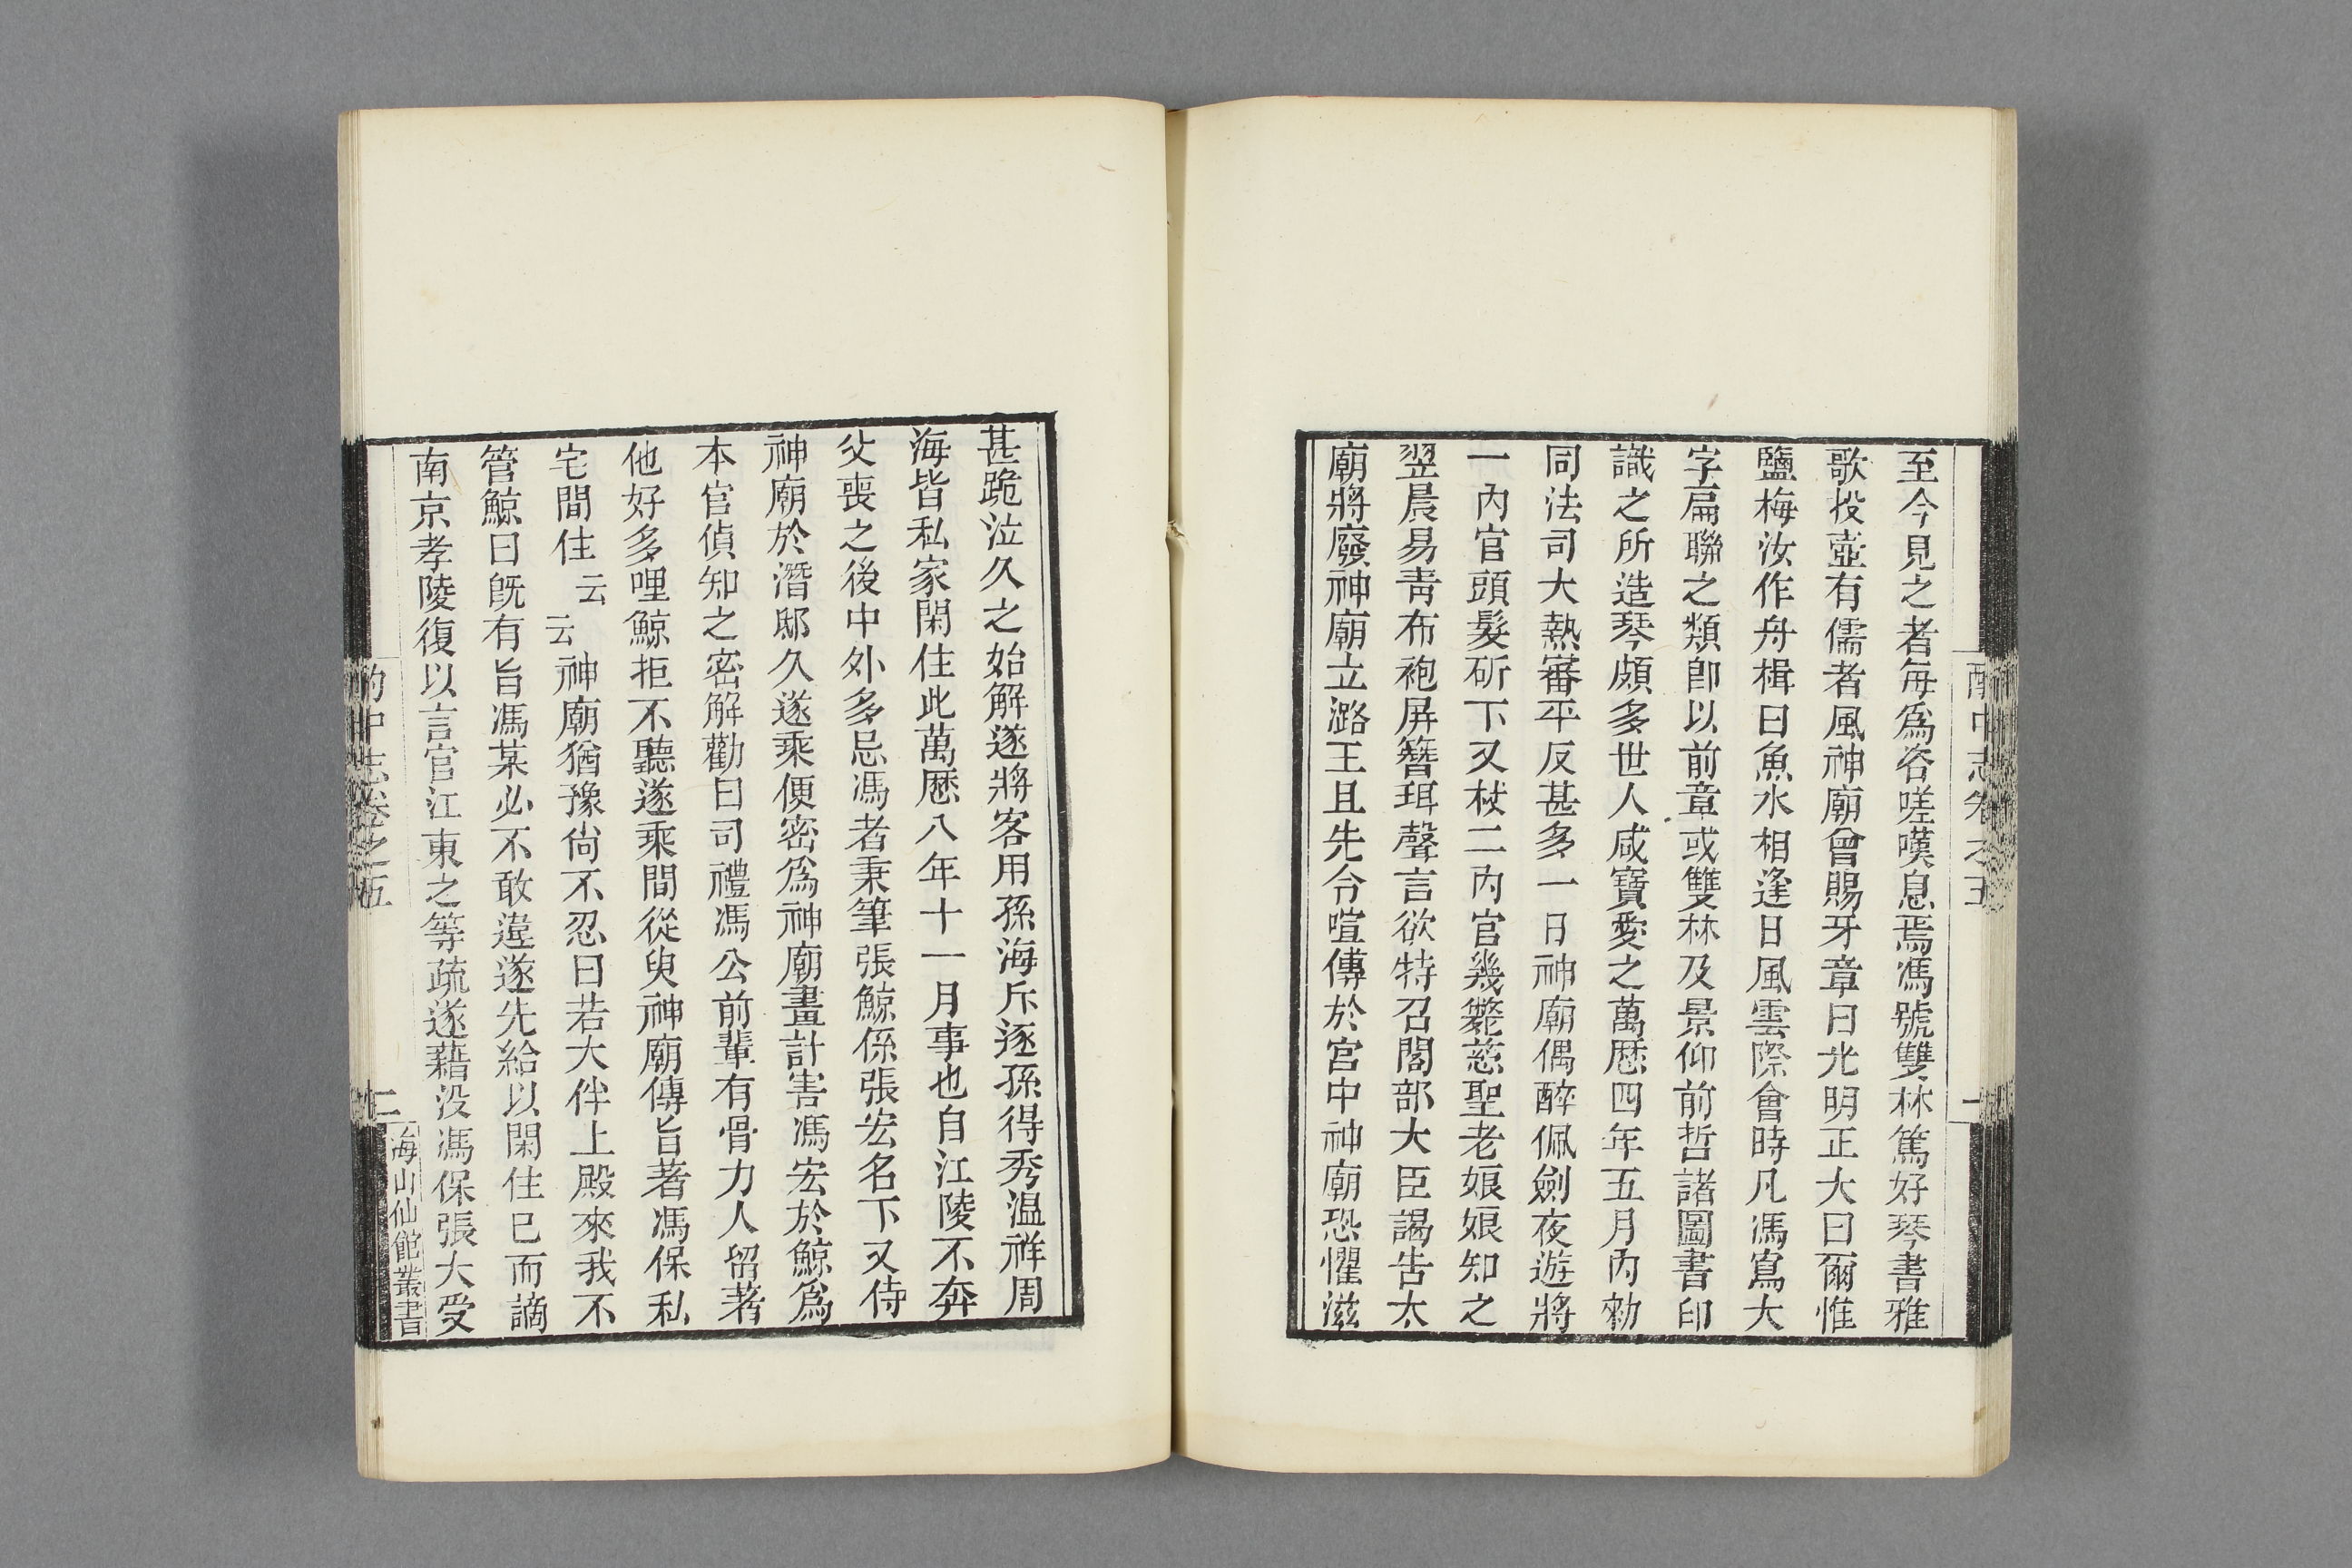 酌中志卷之五
一
至今見之者每爲咨嗟嘆息焉馮號雙林篤好琴書雅
歌投壺有儒者風神廟曾賜牙章曰光明正大曰爾惟
鹽梅汝作舟楫曰魚水相逢日風雲際會時凡馮寫大
字扁聯之類卽以前章或雙林及景仰前哲諸圖書印
識之所造琴頗多世人咸寶愛之萬厯四年五月內勑
同法司大熱審平反甚多一日神廟偶醉佩劍夜遊將
一內官頭髮斫下又杖二內官幾斃慈聖老娘娘知之
翌晨易靑布袍屏簪珥聲言欲特召閣部大臣謁告太
廟將廢神廟立潞王且先令喧傳於宮中神廟恐懼滋
甚跪泣久之始解遂將客用孫海斥逐孫得秀温祥周
海皆私家閑住此萬厯八年十一月事也自江陵不奔
父喪之後中外多忌馮者秉筆張鯨係張宏名下又侍
神廟於潛邸久遂乘便密爲神廟畫計害馮宏於鯨爲
本官偵知之密解勸曰司禮馮公前輩有骨力人留著
他好多哩鯨拒不聽遂乘間從臾神廟傳旨著馮保私
宅閒住云云神廟猶豫尙不忍曰若大伴上殿來我不
管鯨曰旣有旨馮某必不敢違遂先給以閑住已而謫
南京孝陵復以言官江東之等疏遂藉没馮保張大受
酌中志卷之五
二
海山仙館叢書